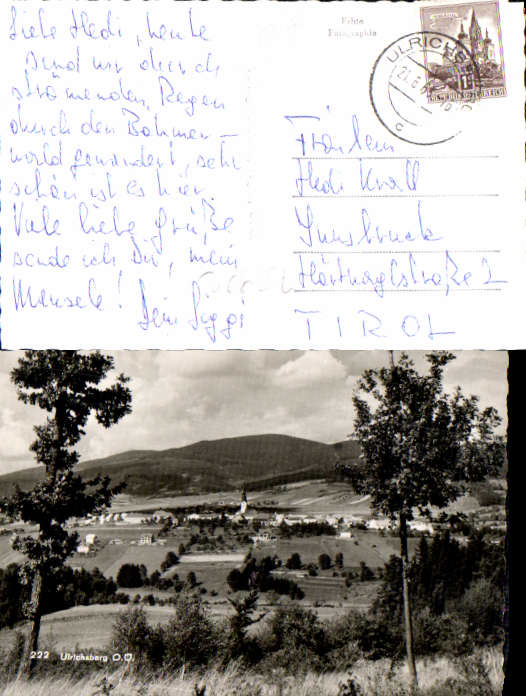 Liebe Hedi, heute
sind wir durch
strömenden Regen
durch den Böhmer-
wald gewandert, sehr
schön ist es hier.
Viele liebe Grüße
sende ich Dir, mein
Mausele!
Dein Siggi
Echte
Fotographie
ULRICHSB
Fräulein
Hedi Krall
Innsbruck
TIROL
222 Ulrichsberg O.Ö.